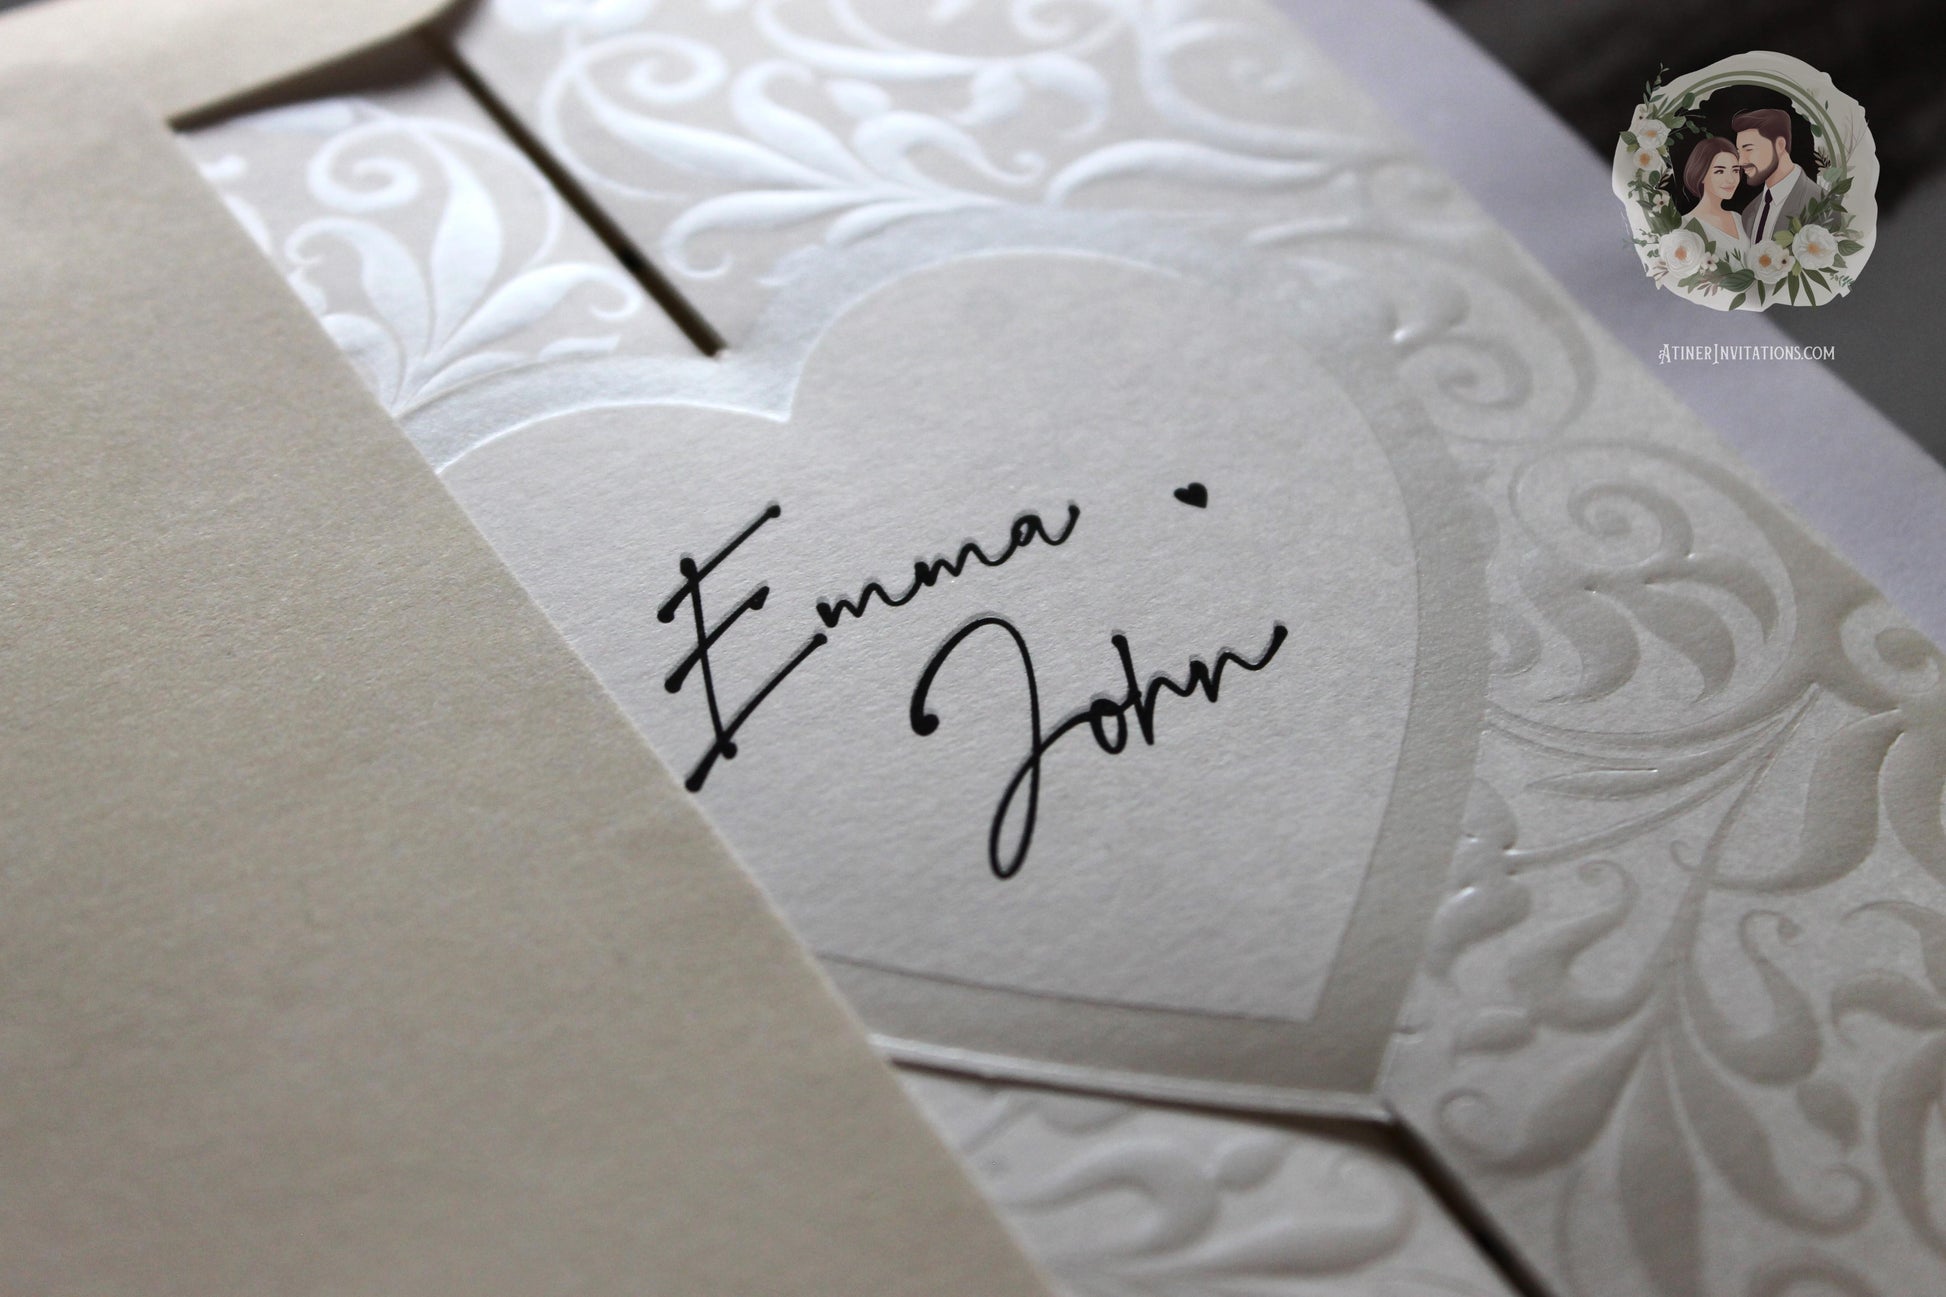 AtinerInvitations.com
Emma
John